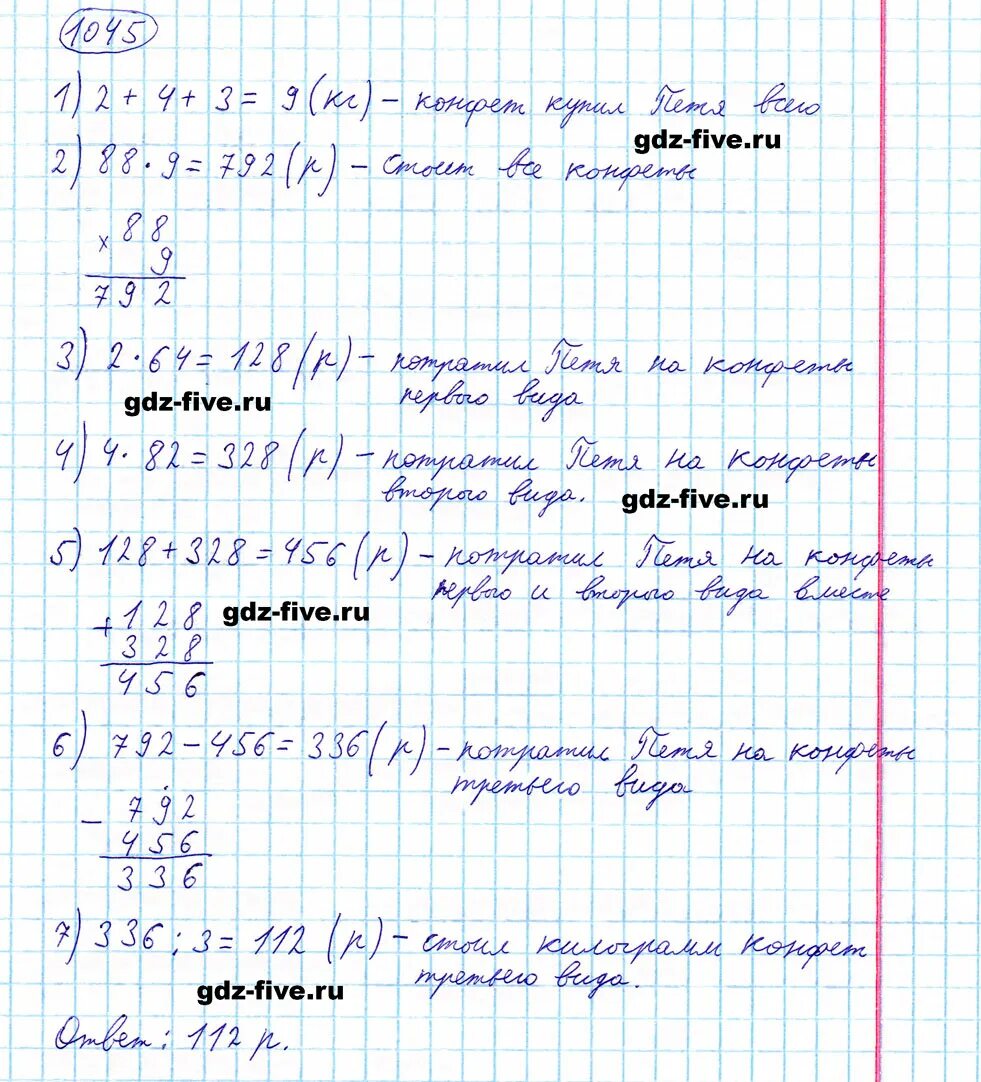 1045
1) 2 + 4 + 3 = 9 (кг) – конфет купил Петя всего
gdz-five.ru
2) 88 · 9 = 792 (р) – стоит все конфеты
× 88
9
792
3) 2 · 64 = 128 (р) – потратил Петя на конфеты
первого вида
gdz-five.ru
4) 4 · 82 = 328 (р) – потратил Петя на конфеты
второго вида.
gdz-five.ru
5) 128 + 328 = 456 (р) – потратил Петя на конфеты
первого и второго вида вместе
gdz-five.ru
+ 128
328
456
6) 792 – 456 = 336 (р) – потратил Петя на конфеты
третьего вида
– 792
456
336
7) 336 : 3 = 112 (р) – стоил килограмм конфет
третьего вида.
gdz-five.ru
Ответ: 112 р.